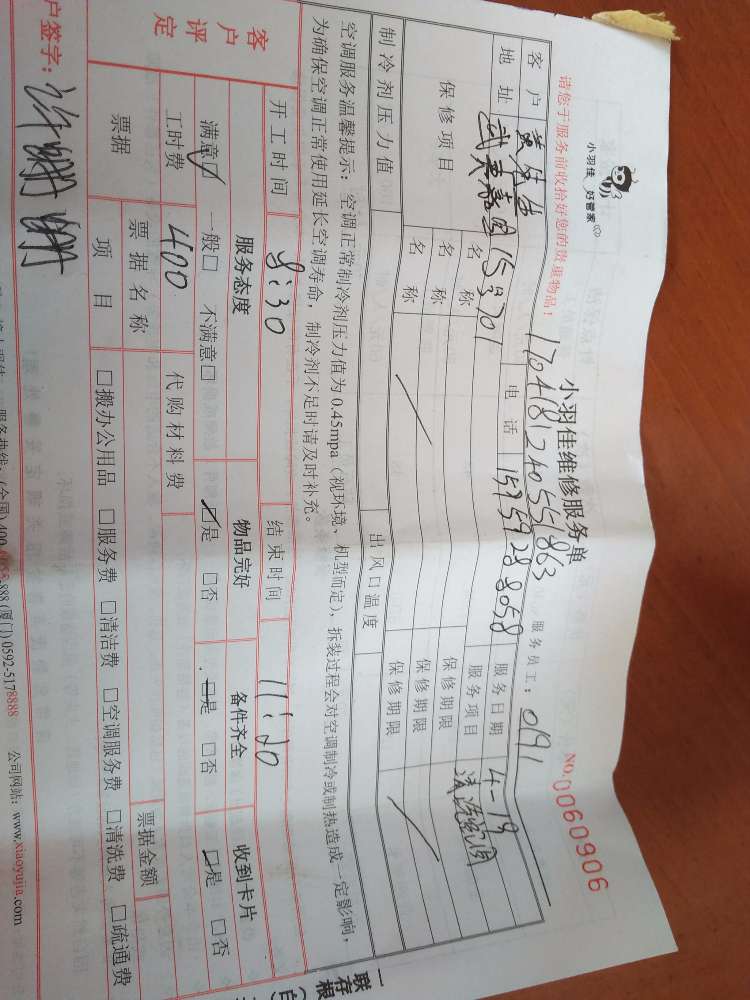 小羽佳 好管家
请您于服务前收拾好您的贵重物品！
小羽佳维修服务单
NO. 0060906
170418124055863
服务员工：0191
客户 电话 15759288058 服务日期 4-19
地址 服务项目
保修项目 名称 保修期限
名称 保修期限
名称 保修期限
制冷剂压力值 出风口温度
空调服务温馨提示：空调正常制冷剂压力值为0.45mpa（视环境、机型而定），拆装过程会对空调制冷或制热造成一定影响，
为确保空调正常使用延长空调寿命，制冷剂不足时请及时补充。
开工时间 8:30 结束时间 11:20
客户评定 服务态度 物品完好 备件齐全 收到卡片
满意□ 一般□ 不满意□ □是 □否 □是 □否 □是 □否
工时费 400 代购材料费
票据 票据名称 票据金额
项目 □搬办公用品 □服务费 □清洁费 □空调服务费 □清洗费 □疏通费
户签字：
服务热线：(全国)400 888 (厦门)0592-5178888 公司网站：www.xiaoyujia.com
一联
存根